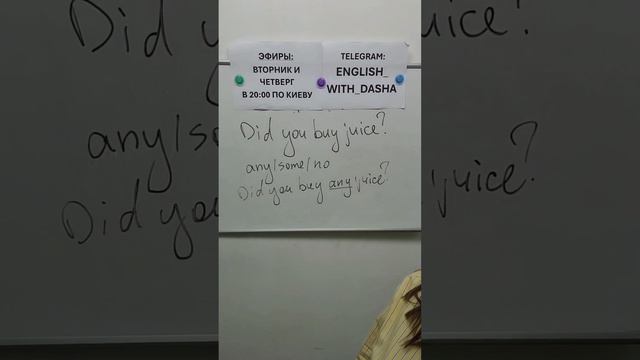 ЭФИРЫ:
ВТОРНИК И
ЧЕТВЕРГ
В 20:00 ПО КИЕВУ
TELEGRAM:
ENGLISH_
WITH_DASHA
Did you buy juice?
any/some/no
Did you buy any juice?